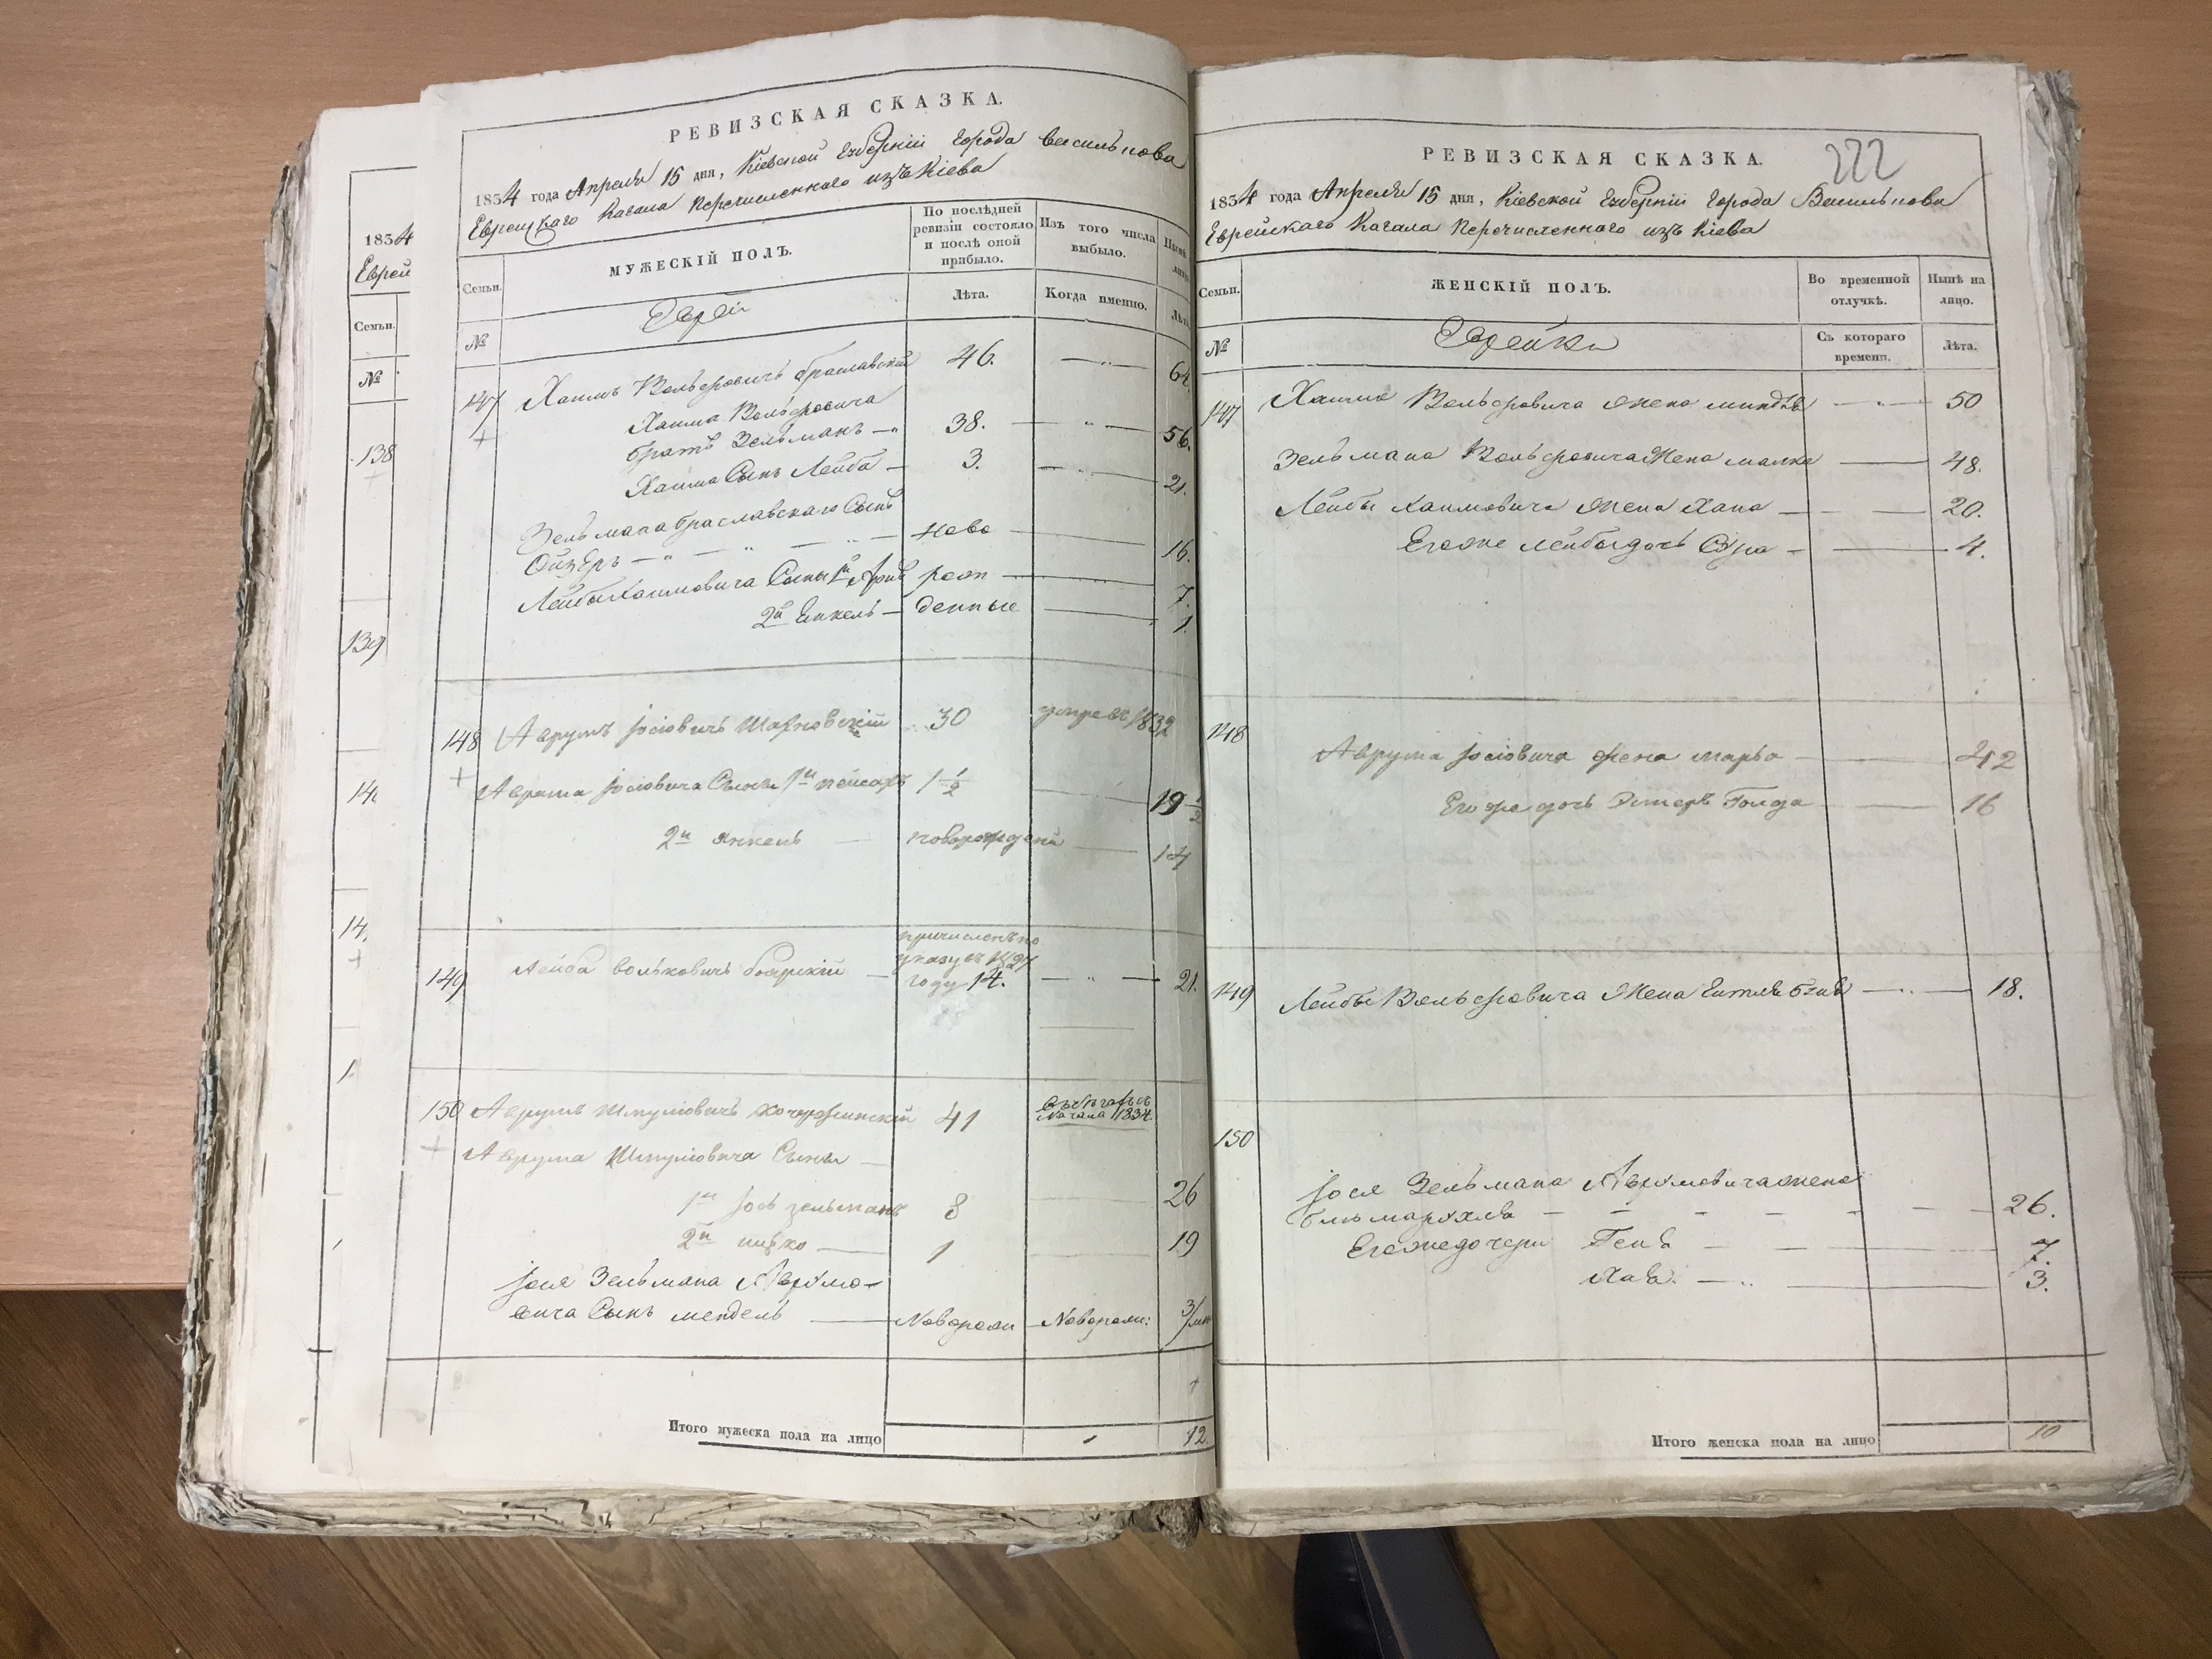 1834
Еврей
Семьи.
№
138
139
14
14
1
РЕВИЗСКАЯ СКАЗКА.
1834 года Апреля 15 дня, Кіевской Губерніи Города Василькова
Еврейскаго Кагала перечисленнаго изъ Кіева
Семьи.
МУЖЕСКІЙ ПОЛЪ.
По послѣдней ревизіи состояло и послѣ оной прибыло.
Изъ того числа выбыло.
№
Еврей
Лѣта.
Когда именно.
147 Хаимъ Вольфовичъ Браславскій 46. 64.
Хаима Вольфовича
братъ Зельманъ 38. 56.
Хаима Сынъ Лейба 3. 21.
Зельмана Браславскаго Сынъ
Ойзеръ ново 16.
Лейбы Хаимовича Сыны 1й Аронъ рож 7.
2й Енкель денные 1.
148 Аврумъ Іосіовичъ 30 умре въ 1832
Аврама Іосіовича Сыны 1й пейсахъ 1 1/2 19 1/2
2й Янкель новорожденый 14
149 Лейба Вольковичъ Боярскій причисленъ по
указу въ 1827
году 14. 21.
150 Аврумъ Шмуліовичъ 41 Начала 1834.
Аврума Шмуліовича Сыны
1й Іось зельманъ 8 26
2й 1 19
Іося Зельмана Аврумо-
вича Сынъ мендель НоворожНоворож: 3/
Итого мужеска пола на лицо 12.
РЕВИЗСКАЯ СКАЗКА.
222
1834 года Апреля 15 дня, Кіевской Губерніи Города Василькова
Еврейскаго Кагала перечисленнаго изъ Кіева
Семьи.
ЖЕНСКІЙ ПОЛЪ.
Во временной отлучкѣ.
Нынѣ на лицо.
№
Еврейки
Съ котораго времени.
Лѣта.
147 Хаима Вольфовича жена миндля 50
Зельмана Вольфовича Жена малке 48.
Лейбы Хаимовича жена Хана 20.
Егоже Лейбы дочь Сура 4.
148
Аврума Іосіовича жена марья 42
Его же дочь Эстеръ Голда 16
149 Лейбы Вольфовича Жена 18.
150
Іося Зельмана Аврумовича жена
26.
Егоже дочери Геня 7.
Хава. 3.
Итого женска пола на лицо 10